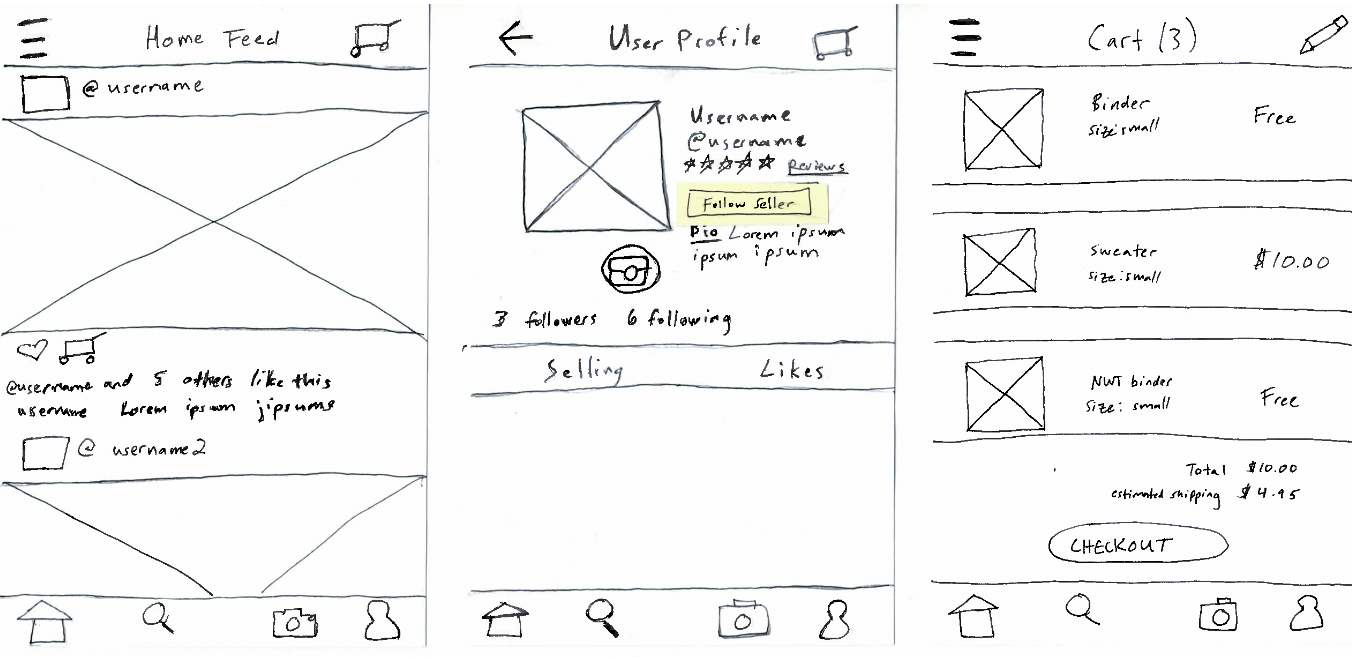 Home Feed
@username
@username and 5 others like this
username Lorem ipsum jipsums
@ username2
User Profile
Username
@username
Reviews
Follow Seller
Bio Lorem ipsum
ipsum ipsum
3 followers 6 following
Selling Likes
Cart (3)
Binder
size:small
Free
Sweater
size:small
$10.00
NWT binder
Size: small
Free
Total $10.00
estimated shipping $4.95
CHECKOUT